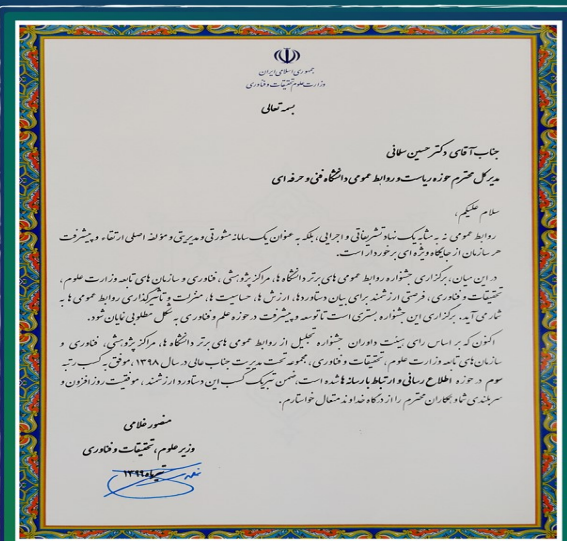 جمهوری اسلامی ایران
وزارت علوم تحقیقات و فناوری
بسمه تعالی
جناب آقای دکتر حسین سلمانی
مدیرکل محترم حوزه ریاست و روابط عمومی دانشگاه فنی و حرفه ای
سلام علیکم،
روابط عمومی نه به مثابه یک نهاد تشریفاتی و اجرایی، بلکه به عنوان یک سامانه مشورتی و مدیریتی و مؤلفه اصلی ارتقاء و پیشرفت
هر سازمان از جایگاه ویژه ای برخوردار است.
در این میان، برگزاری جشنواره روابط عمومی های برتر دانشگاه ها، مراکز پژوهشی، فناوری و سازمان های تابعه وزارت علوم،
تحقیقات و فناوری، فرصتی ارزشمند برای بیان دستاوردها، ارزش ها، حساسیت ها، منزلت و تاثیرگذاری روابط عمومی ها به
شمار می آید. برگزاری این جشنواره بستری است تا توسعه و پیشرفت در حوزه علم و فناوری به شکل مطلوبی نمایان شود.
اکنون که بر اساس رای هیئت داوران جشنواره تجلیل از روابط عمومی های برتر دانشگاه ها، مراکز پژوهشی، فناوری و
سازمان های تابعه وزارت علوم، تحقیقات و فناوری، مجموعه تحت مدیریت جناب عالی در سال ۱۳۹۸، موفق به کسب رتبه
سوم در حوزه اطلاع رسانی و ارتباط با رسانه ها شده است، ضمن تبریک کسب این دستاورد ارزشمند، موفقیت روزافزون و
سربلندی شما و همکاران محترم را از درگاه خداوند متعال خواستارم.
منصور غلامی
وزیر علوم، تحقیقات و فناوری
تیرماه ۱۳۹۹